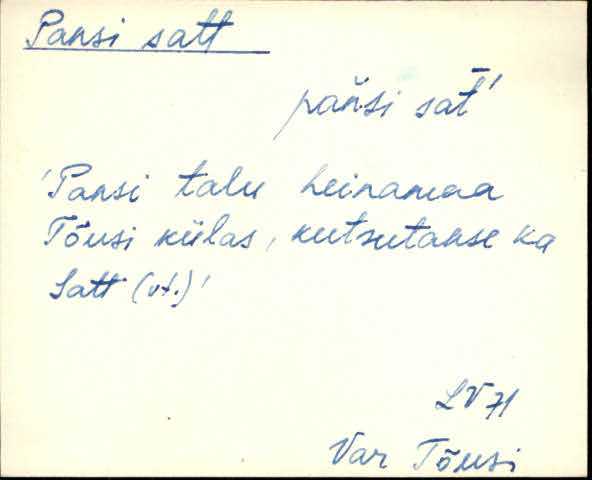 Pansi satt
pańsi sat̄'
'Pansi talu heinamaa
Tõusi külas, kutsutakse ka
Satt (vt.)'
LV 71
Var Tõusi